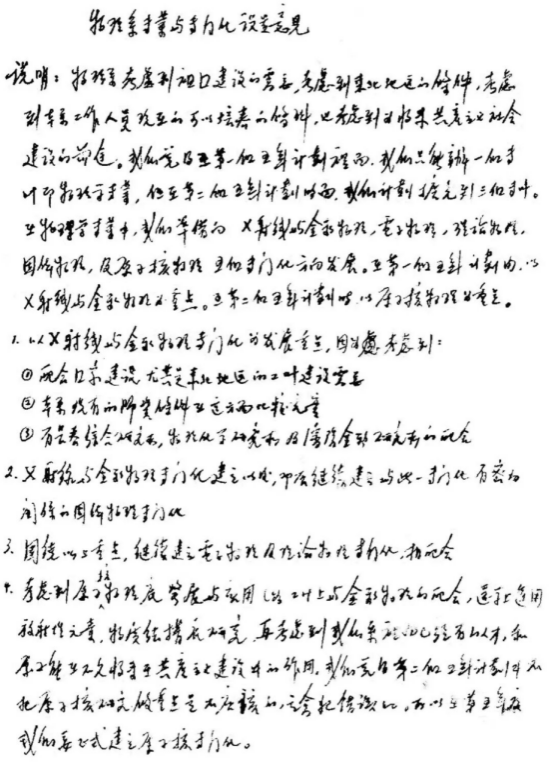 物理系专业与专门化设置意见
说明：物理系考虑到祖国建设的需要，考虑到东北地区的条件，考虑
到本系工作人员现在的可以培养的条件，也考虑到将来共产主义社会
建设的前途。我们觉得在第一个五年计划里面，我们只能办一个专
业即物理学专业，但在第二个五年计划时面，我们计划扩充到三个专业。
在物理学专业中，我们准备向X射线与金属物理，电子物理，理论物理，
固体物理，及原子核物理五个专门化方向发展。在第一个五年计划内，以
X射线与金属物理为重点。在第二个五年计划时以原子核物理为重点。
1. 以X射线与金属物理专门化为发展重点，因为考虑到：
① 配合国家建设尤其是东北地区的工业建设需要
② 本系现有的师资条件在这方面比较充实
③ 有长春综合研究所，物理化学研究所及沈阳金属研究所的配合
2. X射线与金属物理专门化建立以后，即应继续建立与此一专门化有密切
关系的固体物理专门化
3. 围绕以上重点，继续建立电子物理及理论物理专门化，相配合
4. 考虑到原子核物理底发展与应用（如工业上与金属物理的配合，运用
放射性元素，物质结构底研究，再考虑到我们系现已经有的人才，和
原子能在不久将来在共产主义建设中的作用，我们觉得第二个五年计划中不
把原子核研究做重点是不应该的，会犯错误的，所以在第五年度
我们要正式建立原子核专门化。